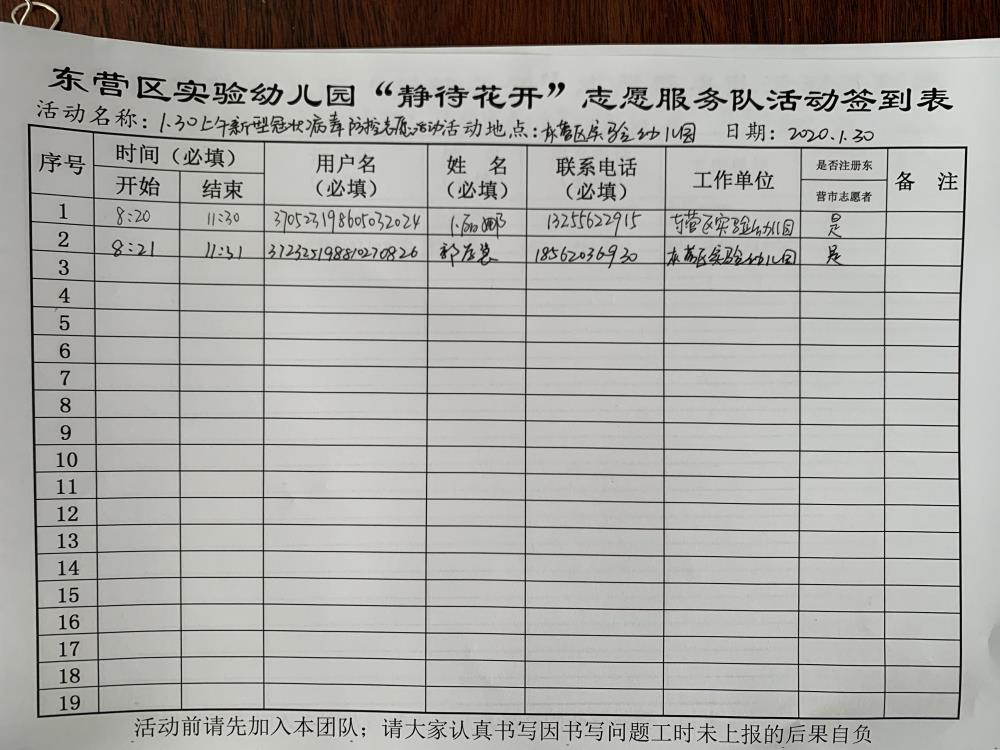 东营区实验幼儿园“静待花开”志愿服务队活动签到表
活动名称：1.30上午新型冠状病毒防控志愿活动 活动地点：东营区实验幼儿园 日期：2020.1.30
序号 时间（必填） 用户名（必填） 姓 名（必填） 联系电话（必填） 工作单位 是否注册东营市志愿者 备 注
开始 结束
1 8:20 11:30 370523198605032024 13255622915 东营区实验幼儿园 是
2 8:21 11:31 372325198810270826 18562036930 东营区实验幼儿园 是
3
4
5
6
7
8
9
10
11
12
13
14
15
16
17
18
19
活动前请先加入本团队；请大家认真书写因书写问题工时未上报的后果自负